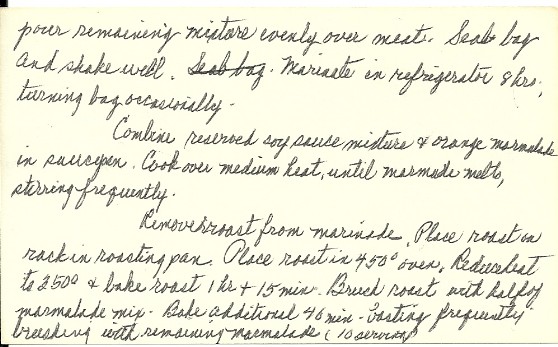 pour remaining mixture evenly over meat. Seab bag
and shake well. Seab bag. Marinate in refrigerator 8 hrs,
turning bag occasionally.
Combine reserved soy sauce mixture & orange marmalade
in saucepan. Cook over medium heat, until marmade melts,
stirring frequently.
Remove roast from marinade. Place roast on
rack in roasting pan. Place roast in 450° oven. Reduce heat
to 350° & bake roast 1 hr + 15 min. Brush roast with half of
marmalade mix. Bake additional 40 min - basting frequently
brushing with remaining marmalade (10 servings